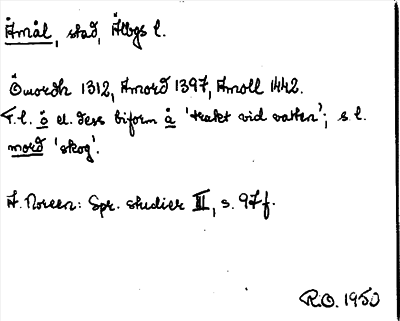 Åmål, stad, Älvgs l.
Ömordh 1312, Amord 1397, Amoll 1442.
F.l. ö el. dess biform å 'trakt vid vatten'; s.l.
mord 'skog'.
A. Noreen: Spr. studier III, s. 97 f.
R.O. 1950